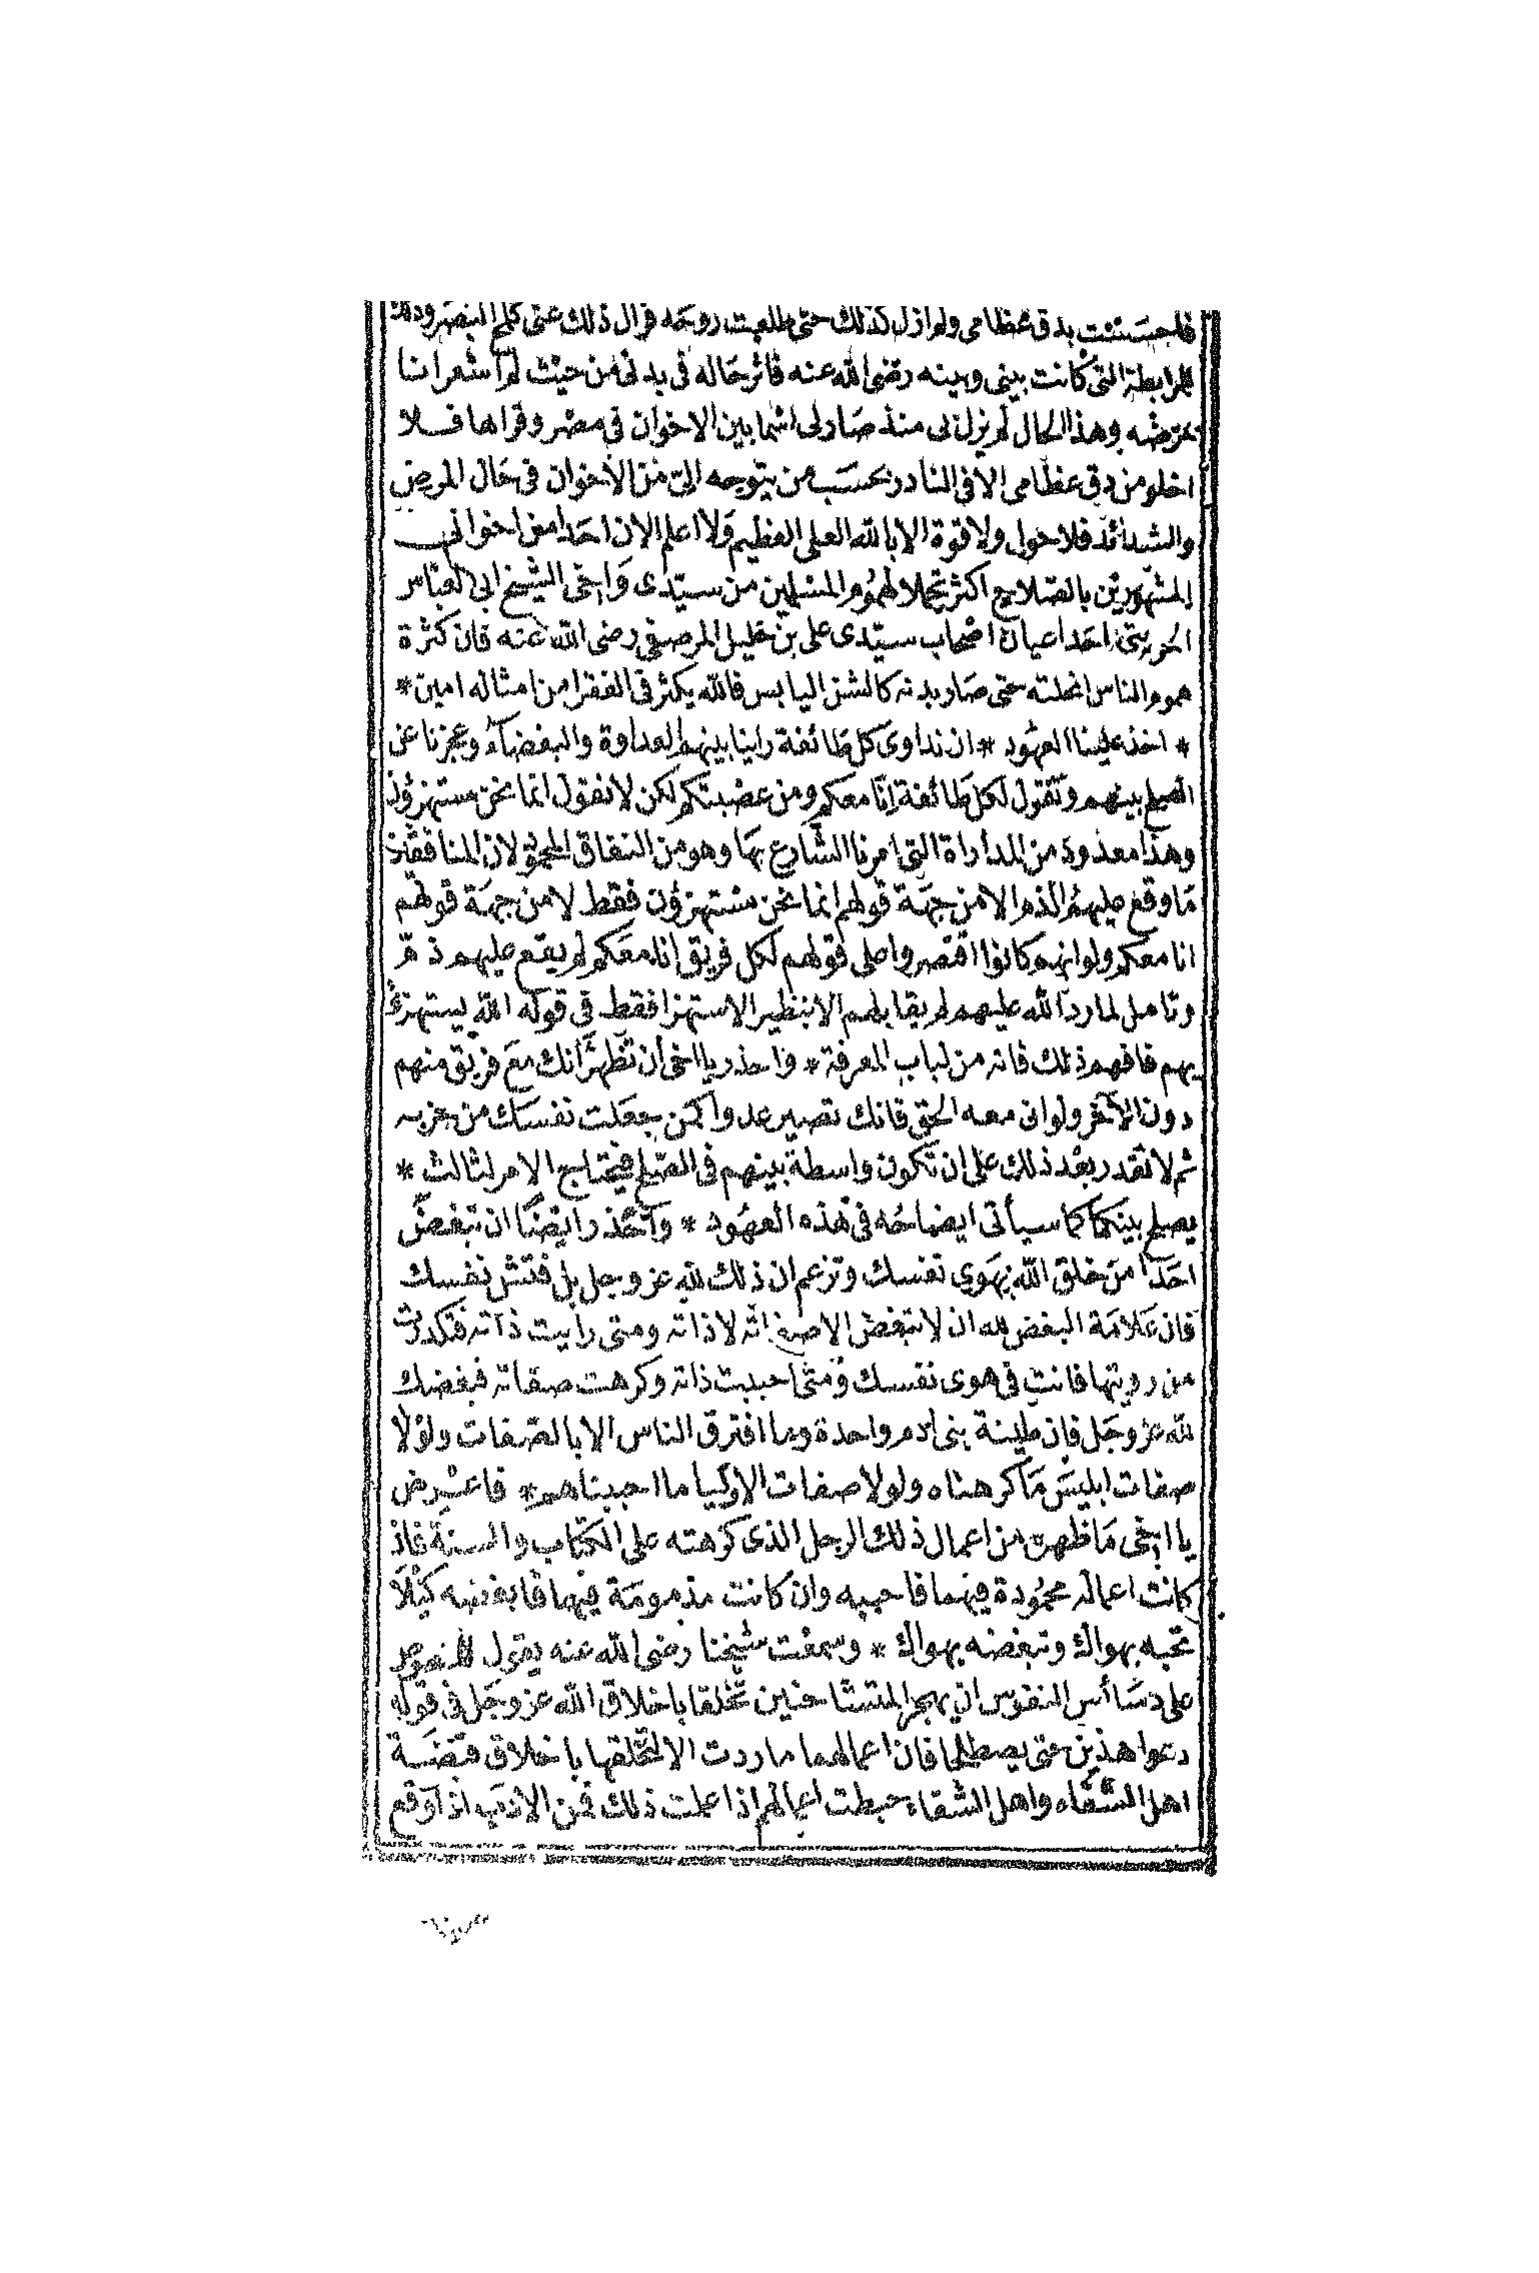 فاحسست بدق عظامى ولم ازل كذلك حتى طلعت روحه فزال ذلك عنى كلمح البصر وذلك
للرابطة التى كانت بينى وبينه رضى الله عنه فاثر حاله فى بدنى من حيث لم اشعر انا
بمرضه وهذا الحال لم يزل لى منذ صار لى اسما بين الاخوان فى مصر وقراها فلا
اخلو من دق عظامى الا فى النادر بحسب من يتوجه الىّ من الاخوان فى حال المرض
والشدائد فلا حول ولا قوة الا بالله العلى العظيم ولا اعلم الان احدا من اخوانى
المشهورين بالصلاح اكثر تحملا لهموم المسلمين من سيّدى واخى الشيخ ابى العباس
الحريثى احد اعيان اصحاب سيّدى على بن خليل المرصفى رضى الله عنه فان كثرة
هموم الناس انحلته حتى صار بدنه كالشن اليابس فالله يكثر فى الفقرا من امثاله امين *
* اخذ علينا العهود * ان نداوى كل طائفة راينا بينهم العداوة والبغضاء وعجزنا عن
الصلح بينهم ونقول لكل طائفة انّا معكم ومن عصبتكم لكن لا نقول انما نحن مستهزؤن
وهذا معدود من المداراة التى امرنا الشارع بها وهو من النفاق المحمود لان المنافقين
ما وقع عليهم الذم الا من جهة قولهم انما نحن مستهزؤن فقط لا من جهة قولهم
انا معكم ولو انهم كانوا اقتصروا على قولهم لكل فريق انا معكم لم يقع عليهم ذمّ
وتامل لما ردّ الله عليهم لم يقابلهم الا بنظير الاستهزا فقط فى قوله الله يستهزئ
بهم فافهم ذلك فانه من لباب المعرفة * واحذر يا اخى ان تظهر انك مع فريق منهم
دون الآخر ولو انى معه الحق فانك تصير عدوا لمن جعلت نفسك من حزبه
ثم لا تقدر بعد ذلك على ان تكون واسطة بينهم فى الصلح فيحتاج الامر لثالث *
يصلح بينكما كما سيأتى ايضاحه فى هذه العهود * واحذر ايضًا ان تبغض
احدًا من خلق الله بهوى نفسك وتزعم ان ذلك لله عز وجل بل فتش نفسك
فان علامة البغض لله ان لا تبغض الا صفاته لا ذاته ومتى رايت ذاته فتكدرت
من رويتها فانت فى هوى نفسك ومتى احببت ذاته وكرهت صفاته فبغضك
لله عز وجل فان طينة بنى ادم واحدة وما افترق الناس الا بالصفات ولولا
صفات ابليس ما كرهناه ولولا صفات الاوليا ما احببناهم * فاعرض
يا اخى ما ظهر من اعمال ذلك الرجل الذى كرهته على الكتاب والسنة فان
كانت اعماله محمودة فيهما فاحببه وان كانت مذمومة فيهما فابغضه كيلا
تحبه بهواك وتبغضه بهواك * وسمعت شيخنا رضى الله عنه يقول
على دسائس النفوس ان يهجر المتشاحنين تخلقا باخلاق الله عز وجل فى قوله
دعوا هذين حتى يصطلحا فان اعمالهما ما ردت الا لتخلقها باخلاق قبضة
اهل الشقاء واهل الشقاء حبطت اعمالهم اذا علمت ذلك فمن الادب اذا وقع